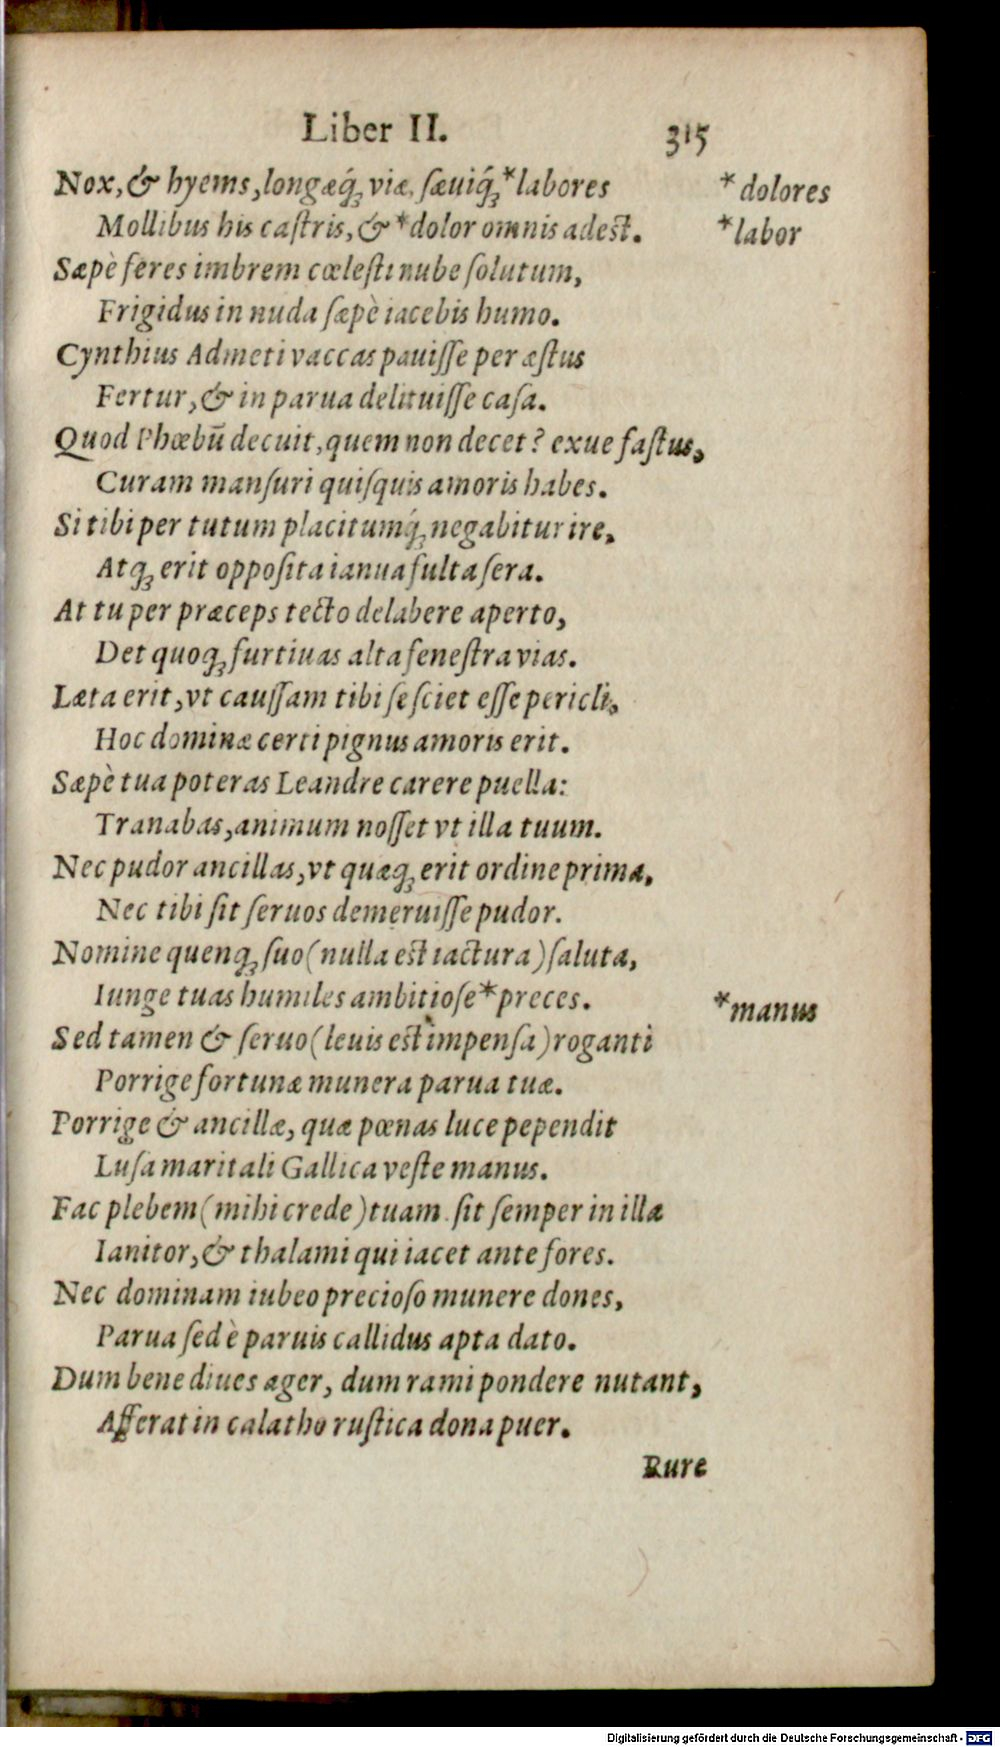 Liber II. 315
Nox, & hyems, longæq́; viæ, ſæuiq́; *labores *dolores
Mollibus his caſtris, & *dolor omnis adest. *labor
Sæpè feres imbrem cœlesti nube ſolutum,
Frigidus in nuda ſæpè iacebis humo.
Cynthius Admeti vaccas pauiſſe per æſtus
Fertur, & in parua delituiſſe caſa.
Quod Phœbū decuit, quem non decet? exue faſtus,
Curam manſuri quiſquis amoris habes.
Si tibi per tutum placitumq́; negabitur ire,
Atq; erit oppoſita ianua fulta ſera.
At tu per præceps tecto delabere aperto,
Det quoq; furtiuas alta feneſtra vias.
Læta erit, vt cauſſam tibi ſe ſciet eſſe pericli,
Hoc dominæ certi pignus amoris erit.
Sæpè tua poteras Leandre carere puella:
Tranabas, animum noſſet vt illa tuum.
Nec pudor ancillas, vt quæq; erit ordine prima,
Nec tibi ſit ſeruos demeruiſſe pudor.
Nomine quenq; ſuo (nulla est iactura) ſaluta,
Iunge tuas humiles ambitioſe *preces. *manus
Sed tamen & ſeruo (leuis est impenſa) roganti
Porrige fortunæ munera parua tuæ.
Porrige & ancillæ, quæ pœnas luce pependit
Luſa maritali Gallica veſte manus.
Fac plebem (mihi crede) tuam. ſit ſemper in illa
Ianitor, & thalami qui iacet ante fores.
Nec dominam iubeo precioſo munere dones,
Parua ſed è paruis callidus apta dato.
Dum bene diues ager, dum rami pondere nutant,
Afferat in calatho ruſtica dona puer.
Rure
Digitalisierung gefördert durch die Deutsche Forschungsgemeinschaft - DFG